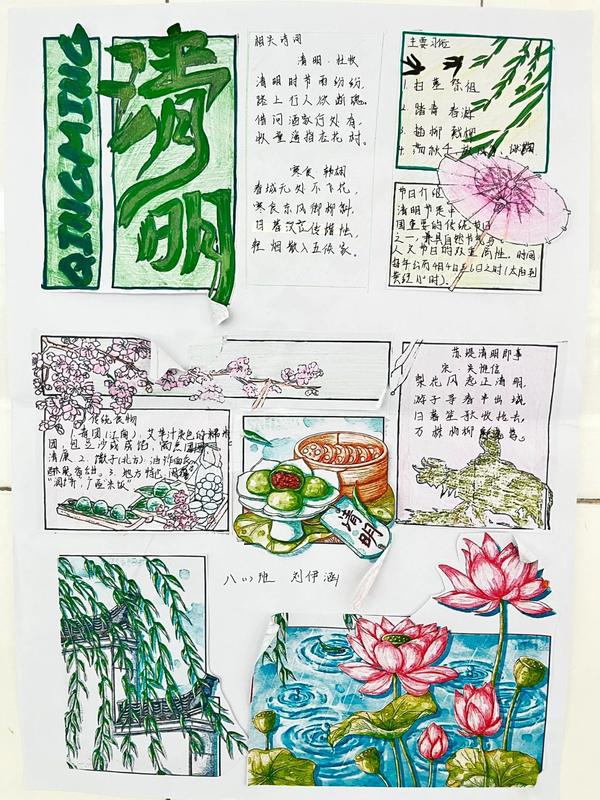 QINGMING
清明
相关诗词
清明·杜牧
清明时节雨纷纷，
路上行人欲断魂。
借问酒家何处有，
牧童遥指杏花村。
寒食 韩翃
春城无处不飞花，
寒食东风御柳斜。
日暮汉宫传蜡烛，
轻烟散入五侯家。
主要习俗
1. 扫墓 祭祖
2. 踏青 春游
3. 插柳 戴柳
4. 荡秋千
节日介绍
清明节是中
国重要的传统节日
之一，兼具自然节气与
人文节日的双重属性。时间
每年公历4月4日至6日之时(太阳到
黄经15时).
苏堤清明即事
宋·吴惟信
梨花风起正清明，
游子寻春半出城。
日暮笙歌收拾去，
万株杨柳属流莺。
传统食物
1. 青团(江南)，艾草汁染色的糯米
团，包豆沙或咸馅，
清康 2. 馓子(北方) 油炸面
3. 地方特色
清明
八(1)班 刘伊涵